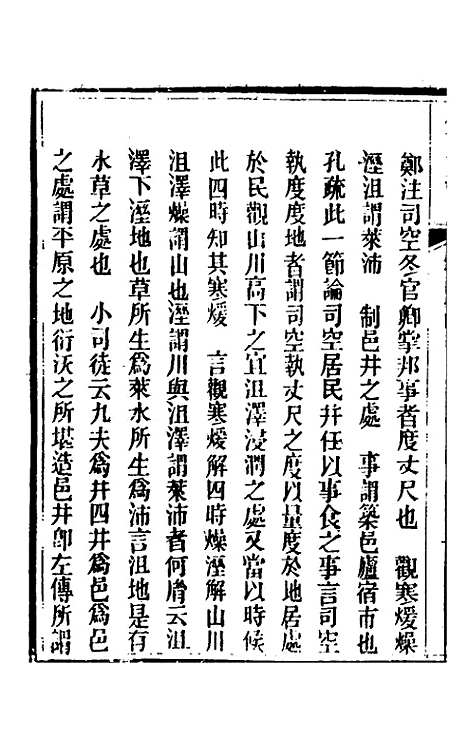 鄭注司空冬官卿掌邦事者度丈尺也　觀寒煖燥
溼沮謂萊沛　制邑井之處　事謂築邑廬宿市也
孔疏此一節論司空居民幷任以事食之事言司空
執度度地者謂司空執丈尺之度以量度於地居處
於民觀山川高下之宜沮澤浸潤之處又當以時候
此四時知其寒煖　言觀寒煖解四時燥溼解山川
沮澤燥謂山也溼謂川與沮澤謂萊沛者何胤云沮
澤下溼地也草所生爲萊水所生爲沛言沮地是有
水草之處也　小司徒云九夫爲井四井爲邑爲邑
之處謂平原之地衍沃之所堪造邑井卽左傳所謂